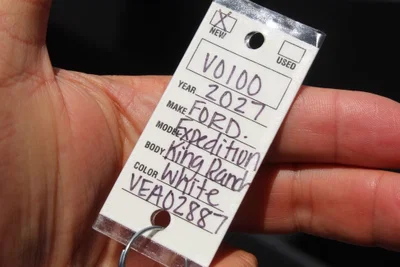 X
NEW
USED
V0100
YEAR 2027
MAKE FORD.
MODEL Expedition
BODY King Ranch
COLOR White
VEA02887